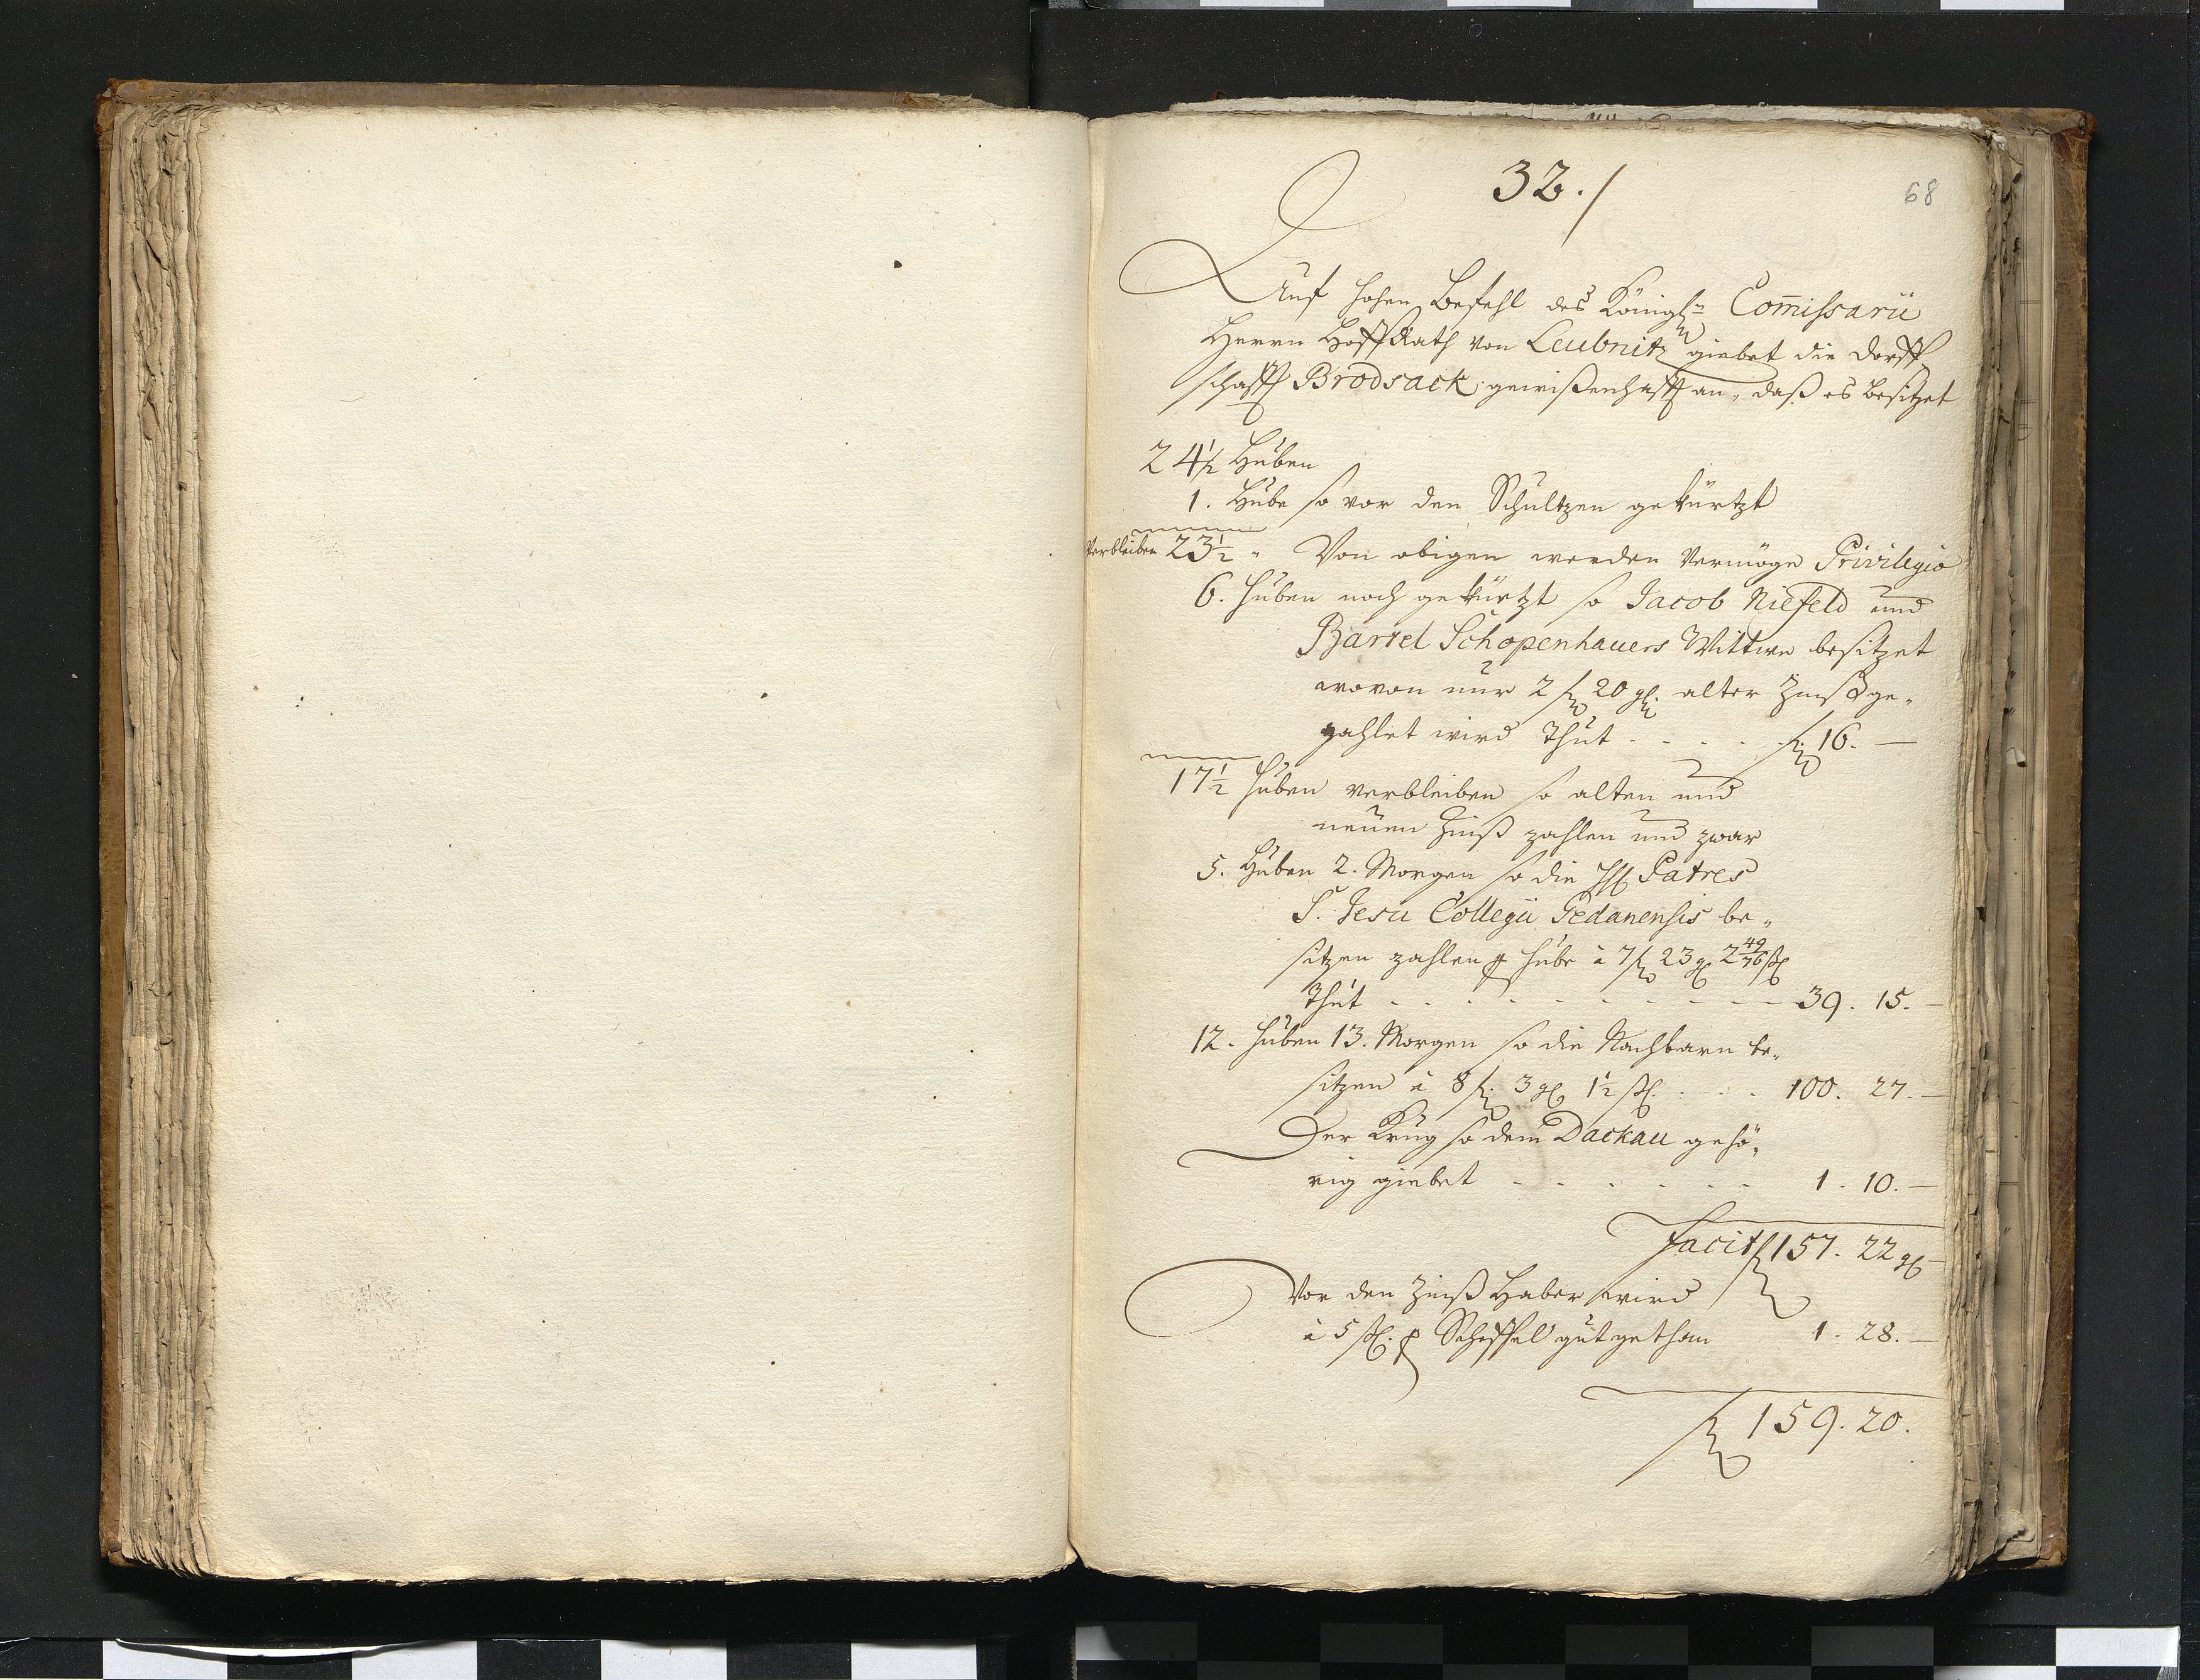 32./
68
Auf hohen Befehl des Königl: Com̄issarii
Herrn HoffRath von Leubnitz giebet die Dorff
schafft Brodsack gewißenhafft an, daß es besitzet
24 1/2 Huben
1. Hube so vor den Schultzen gekürtzt
verbleiben 23 1/2 " Von obigen werden vermöge Privilegio
6. Huben noch gekürtzt so Jacob Niefeld und
Bartel Schopenhauers Wittwe besitzet
wovon nur 2 f 20 gl. alter Zinß ge„
zahlet wird Thut . . . . f 16. —
17 1/2 Huben verbleiben so alten und
neuen Zinß zahlen und zwar
5. Huben 2. Morgen so die HH Patres
S. Jesu Collegii Gedanensis be„
sitzen zahlen p Hube à 7 f 23 gl 2 49/76 ßl
Thut - - - - - - - - - - 39. 15. —
12. Huben 13. Morgen so die Nachbarn be„
sitzen à 8 f. 3 gl 1 1/2 ßl. . . . 100. 27. —
Der Krug so dem Dackau gehö„
rig giebet - - - - - - 1. 10. —
Facit f 157. 22 gl —
Vor den Zinß Haber wird
à 5 ßl. p Scheffel gut gethan 1. 28. —
f 159. 20.